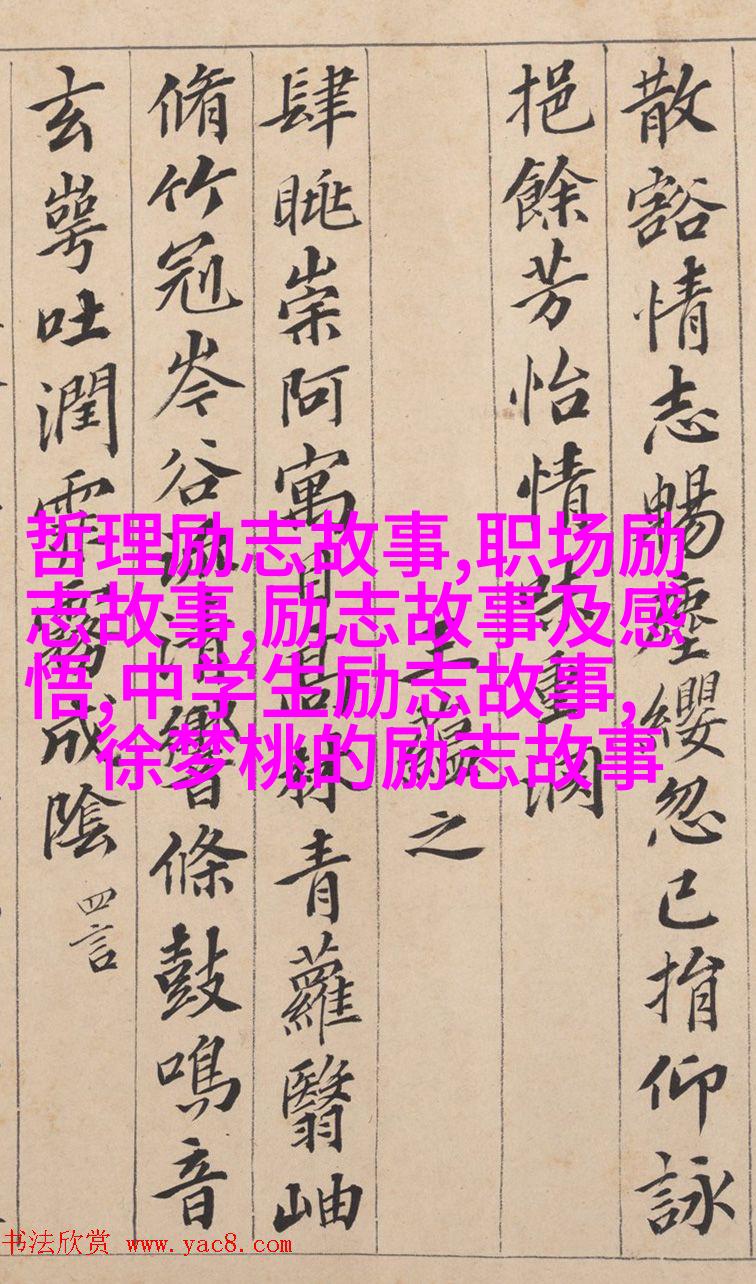 散豁情志暢塵纓忽已捐仰詠
挹餘芳怡情味重淵
王蘊之
肆眺崇阿寓目高林青蘿翳岫
脩竹冠岑谷流清響條鼓鳴音
玄崿吐潤霏霧成陰 四言
哲理励志故事,职场励
志故事,励志故事及感
悟,中学生励志故事,
徐梦桃的励志故事
书法欣赏 www.yac8.com